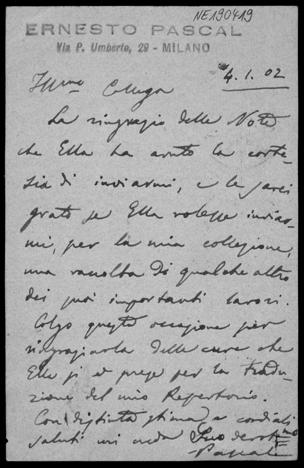 NE190419
ERNESTO PASCAL
Via P. Umberto, 29 - MILANO
4.1.02
Ill.mo Collega
La ringrazio delle Note
che Ella ha avuto la corte-
sia di inviarmi, e le sarei
grato se Ella volesse inviar-
mi, per la mia collezione,
una raccolta di qualche altro
dei suoi importanti lavori.
Colgo questa occasione per
ringraziarla delle cure che
Ella si è prese per la tradu-
zione del mio Repertorio.
Con distinta stima e cordiali
saluti mi creda Suo devotmo
EPascal